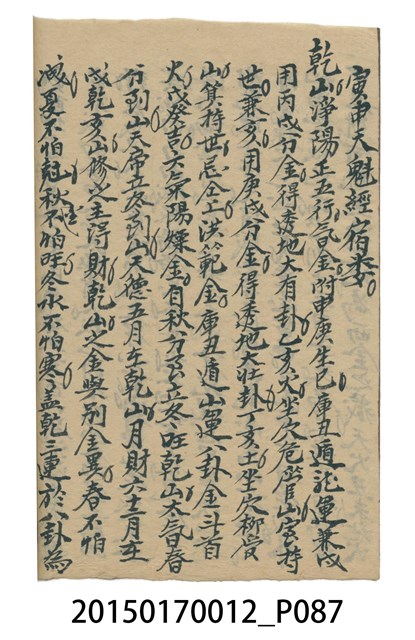 寅申天魁經宿婁
乾山淨陽正五行氣金附申庚生巳庫丑遁龍運兼戌
用丙戌分金得透地大有卦乙亥火坐穴危管山宜持
世兼亥用庚戌分金得透地大壯卦丁亥土坐穴柳管
山箕持世忌仝上洪範金庫丑遁山運八卦金斗首
火戊癸吉六氣陽燥金自秋分立冬旺乾山太氣春
分到山天帝立冬到山天德五月在乾山月財六十二月在
戌乾亥山修之主得財乾山之金與別金異春不怕
滅夏不怕尅秋不怕旺冬水不怕寒蓋乾三連於八卦為
20150170012_P087